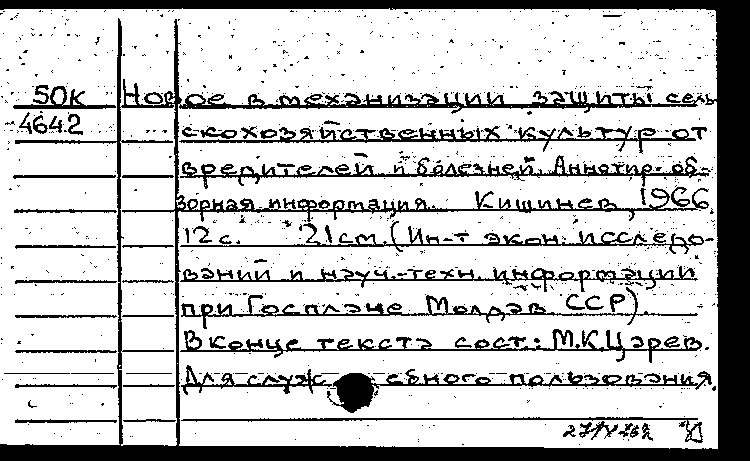 50К Новое в механизации защиты сель-
4642 скохозяйственных культур от
вредителей и болезней. Аннотир. об-
зорная информация. Кишинев, 1966.
12 с. 21 см. (Ин-т экон. исследо-
ваний и науч.-техн. информации
при Госплане Молдав. ССР).
В конце текста сост.: М.К.Царев.
Для служ ебного пользования.